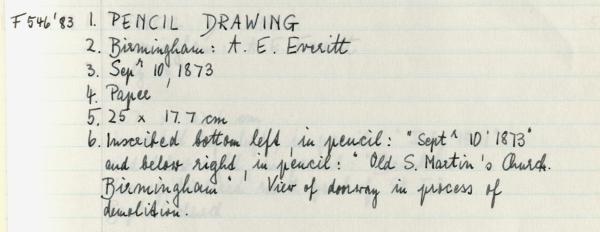 F 546'83 1. PENCIL DRAWING
2. Birmingham: A. E. Everitt
3. Septr 10, 1873
4. Paper
5. 25 x 17.7 cm
6. Inscribed bottom left, in pencil: "Septr 10' 1873"
and below right, in pencil: "Old S. Martin's Church.
Birmingham". View of doorway in process of
demolition.